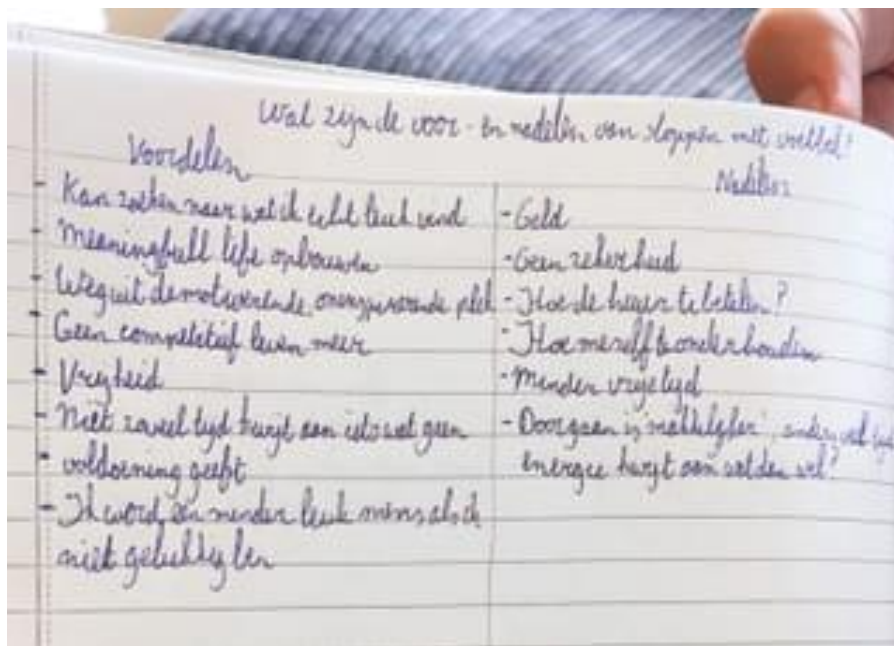 Wat zijn de voor- en nadelen van stoppen met voetbal?
Voordelen
- Kan zoeken naar wat ik echt leuk vind
- Meaningfull life opbouwen
- Weg uit demotiverende, plek
- Geen competitief leven meer
- Vrijheid
- Niet zoveel tijd kwijt aan iets wat geen
- voldoening geeft
- Ik word een minder leuk mens als ik
niet gelukkig ben
Nadelen
- Geld
- Geen zekerheid
- Hoe de huur te betalen?
- Hoe mezelf te onderhouden
- Minder vrije tijd
- Doorgaan is 'makkelijker',
energie kwijt aan